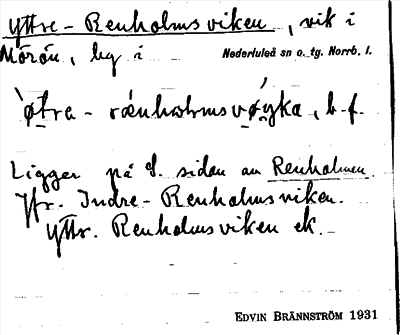 Yttre-Renholmsviken, vik i
Mörön, by i Nederluleå sn o. tg. Norrb. l.
øtra-rænholmsvøyka, b.f.
Ligger på S. sidan av Renholmen.
Jfr. Indre-Renholmsviken.
Yttr. Renholmsviken ek.
EDVIN BRÄNNSTRÖM 1931